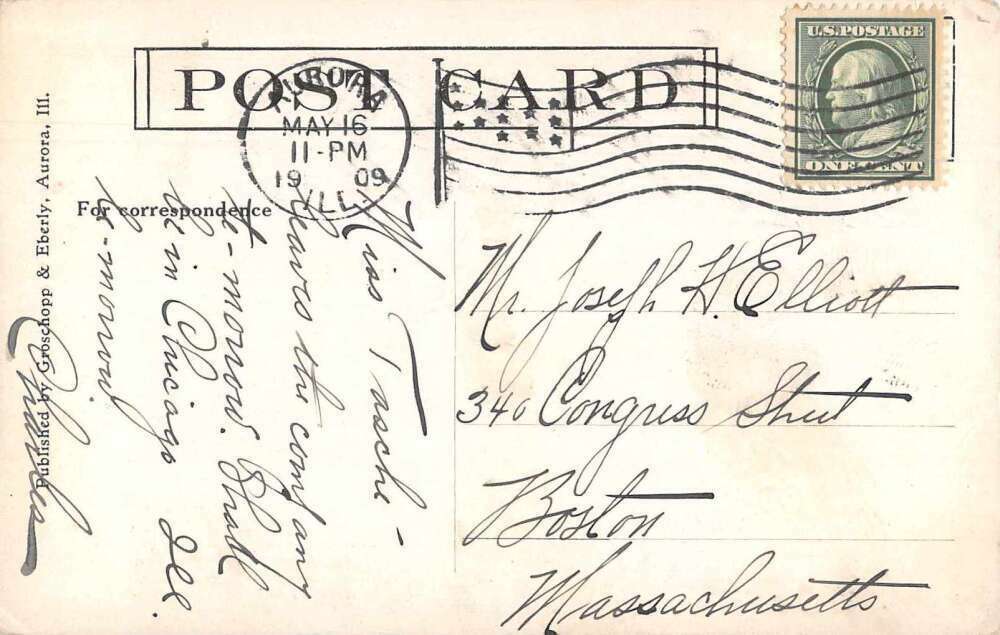 POST CARD
U.S.POSTAGE
ONE CENT
AURORA
MAY 16
11-PM
1909
ILL.
For correspondence
Published by Groschopp & Eberly, Aurora, Ill.
Miss Tasche -
leaves the company
to-morrow. Shall
be in Chicago Ill.
to-morrow
Charles
Mr. Joseph H. Elliott
340 Congress Street
Boston
Massachusetts